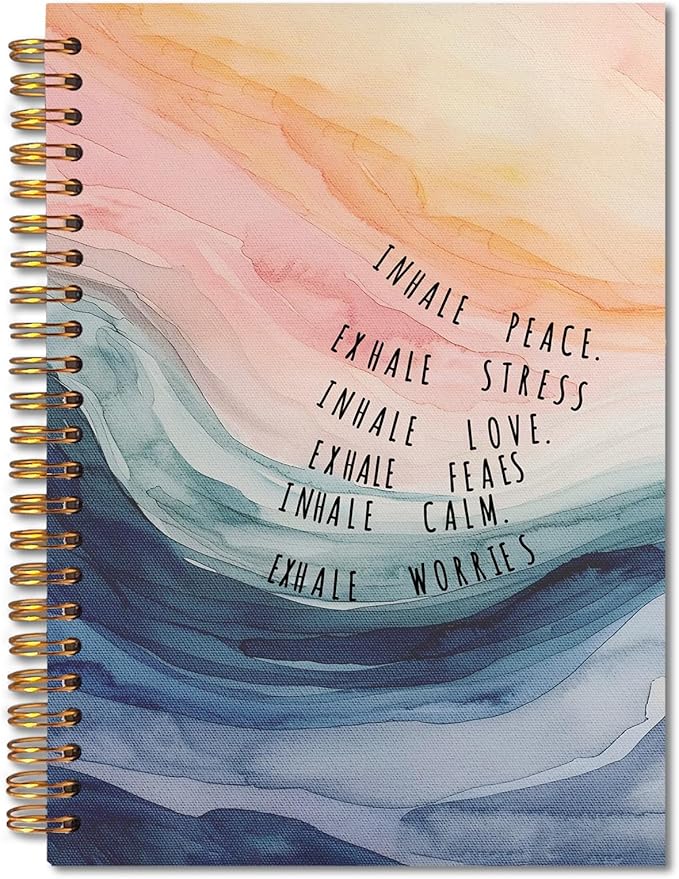 INHALE PEACE.
EXHALE STRESS
INHALE LOVE.
EXHALE FEAES
INHALE CALM.
EXHALE WORRIES